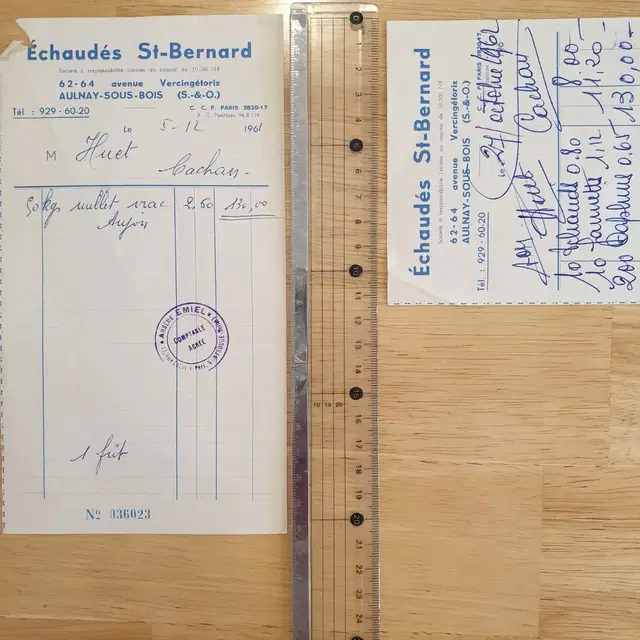 Échaudés St-Bernard
Société à responsabilité limitée au capital de 10.000 NF
62-64 avenue Vercingétorix
AULNAY-SOUS-BOIS (S.-&-O.)
Tél. : 929-60-20
C. C. P. PARIS 3820-17
le 5-12 1961
M Huet
Cachan.
50 kgs millet vrac 2,60 130,00
Anjou
EMIEL
COMPTABLE
AGRÉÉ
1 fût
Nº 036023
0
1
2
3
4
5
6
7
8
9
10
11
12
13
14
15
10 15 20
16
17
18
19
20
21
22
23
24
Échaudés St-Bernard
Société à responsabilité limitée au capital de 10.000 NF
62-64 avenue Vercingétorix
AULNAY-SOUS-BOIS (S.-&-O.)
Tél. : 929-60-20
le 24 octobre 1962
Cachan
10 0.80 8,00
10 1.12 11,20
200 0.65 130,00